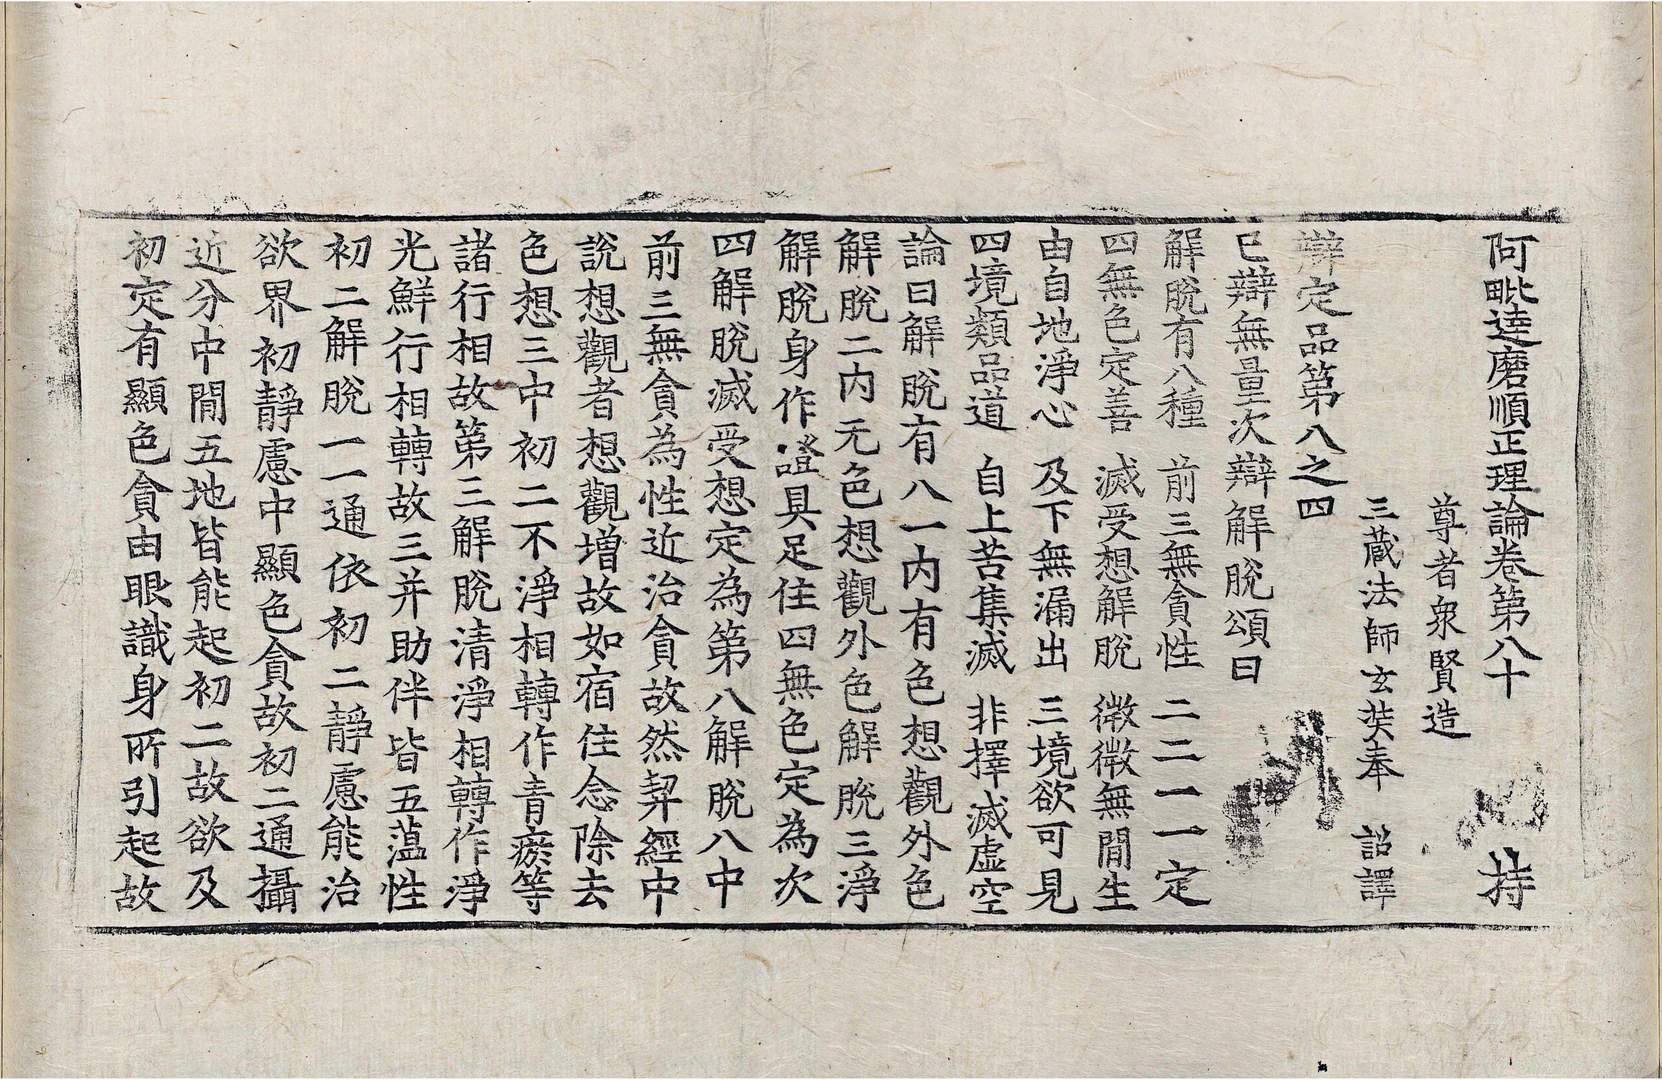 阿毗達磨順正理論卷第八十 持
尊者衆賢造
三藏法師玄奘奉 詔譯
辯定品第八之四
已辯無量次辯解脫頌曰
解脫有八種 前三無貪性 二二一一定
四無色定善 滅受想解脫 微微無間生
由自地淨心 及下無漏出 三境欲可見
四境類品道 自上苦集滅 非擇滅虛空
論曰解脫有八一內有色想觀外色
解脫二內无色想觀外色解脫三淨
解脫身作證具足住四無色定為次
四解脫滅受想定為第八解脫八中
前三無貪為性近治貪故然契經中
說想觀者想觀增故如宿住念除去
色想三中初二不淨相轉作青瘀等
諸行相故第三解脫清淨相轉作淨
光鮮行相轉故三并助伴皆五蕰性
初二解脫一一通依初二靜慮能治
欲界初靜慮中顯色貪故初二通攝
近分中閒五地皆能起初二故欲及
初定有顯色貪由眼識身所引起故